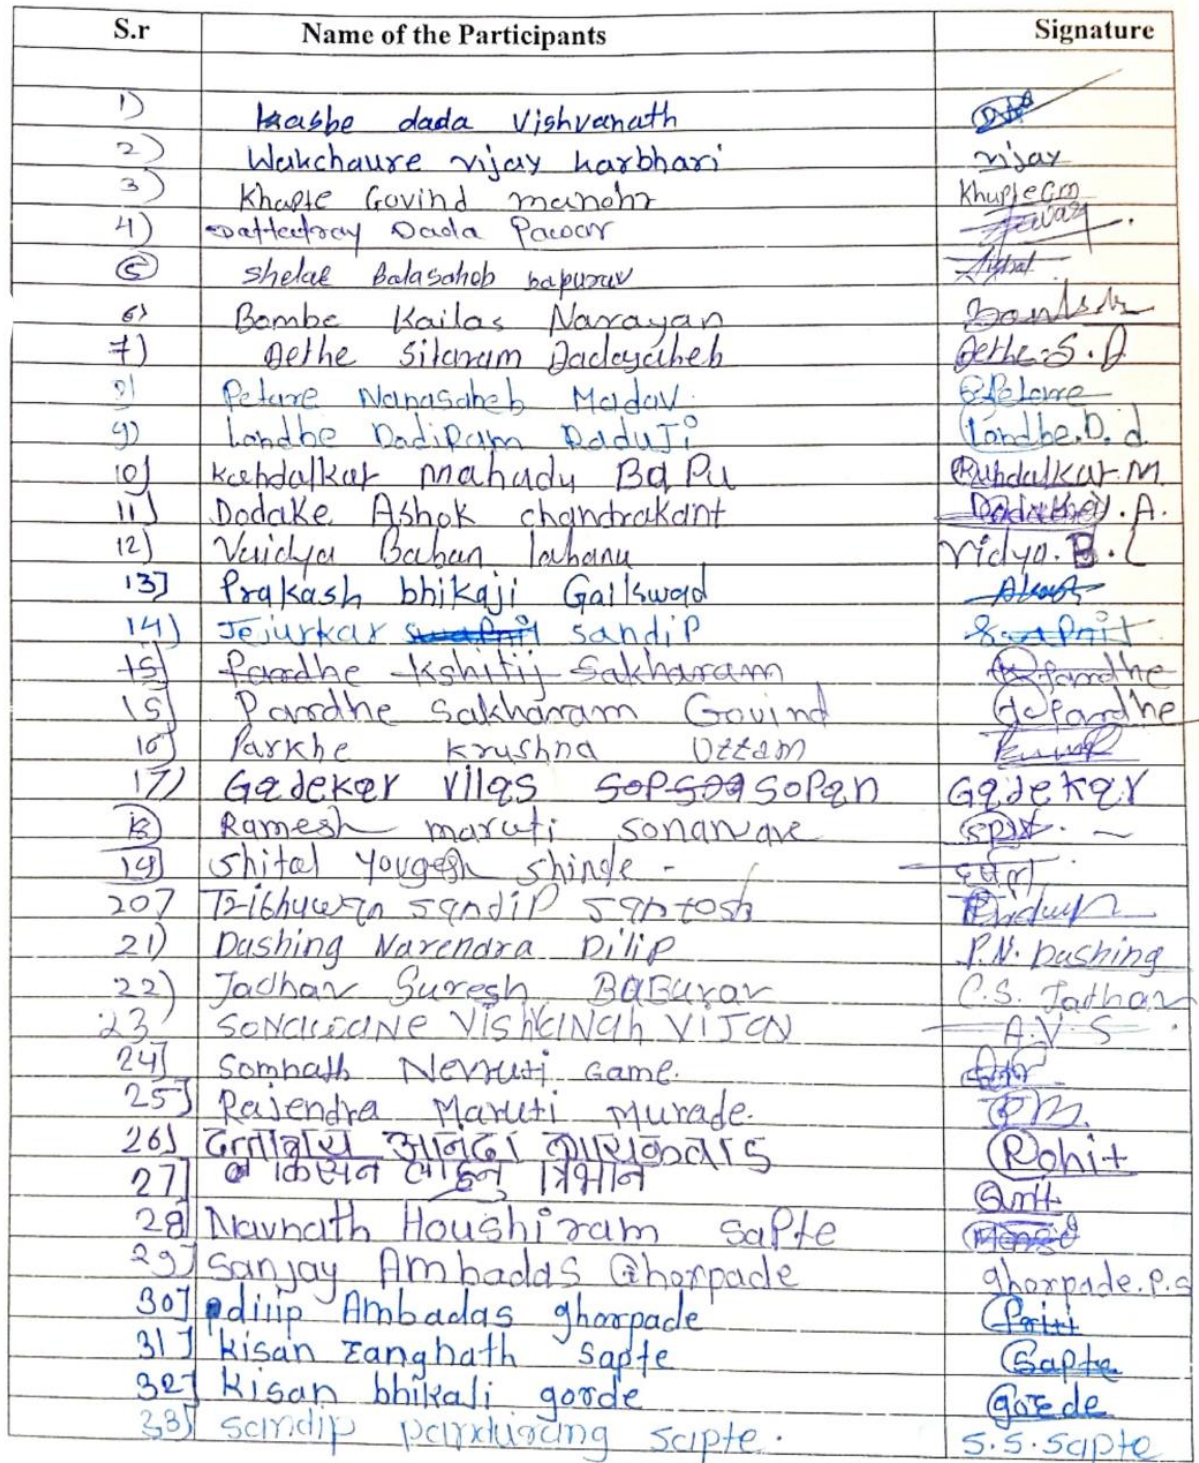 S.r Name of the Participants Signature
1) Kasbe dada Vishvanath
2) Wakchaure Vijay karbhari Vijay
3) Khapte Govind manohr Khupte Gm
4) Dattatray Dada Pawar
5 shelae Balasaheb bapurav
6) Bombe Kailas Narayan
7) Aethe Sitaram Dadasaheb Aethe.S.D
8) Petare Nanasaheb Madav. Petare
9) Londhe Dadiram Daduji Londhe.D.d.
10] Kuhdalkar Mahadu BaPu Kuhdalkar.M.
11] Dodake Ashok chandrakant
12) Vaidya Baban lahanu Vidya.B.L
13] Prakash bhikaji Gaikwad
14) Jejurkar sandip
15] Pardhe Kshitij Sakharam Pardhe
15] Pardhe Sakharam Govind G.Pardhe
16] Parkhe krushna Uttam
17) Gadekar Vilas Sopan Gadekar
18) Ramesh maruti sonawane
19) Shital Yougesh Shinde -
20] Tribhuwan Sandip Santosh
21) Dushing Narendra Dilip P.N. Dushing
22) Jadhav Suresh BaBurav C.S. Jadhav
23 SONAWANE VISHVANAth VIJAN A.V.S
24] Somnath Nevruti Game.
25] Rajendra Maruti Murade. R.M.
26] दत्तात्रय आनंदा गायकवाड Rohit
27] किसन लाहनु त्रिभान
28] Navnath Houshiram Sapte
29] Sanjay Ambadas Ghorpade ghorpade.P.S
30] dilip Ambadas ghorpade
31] kisan Zanghath Sapte Sapte
32] kisan bhikali gorde gorde
33] sandip pandurang sapte. S.S.Sapte